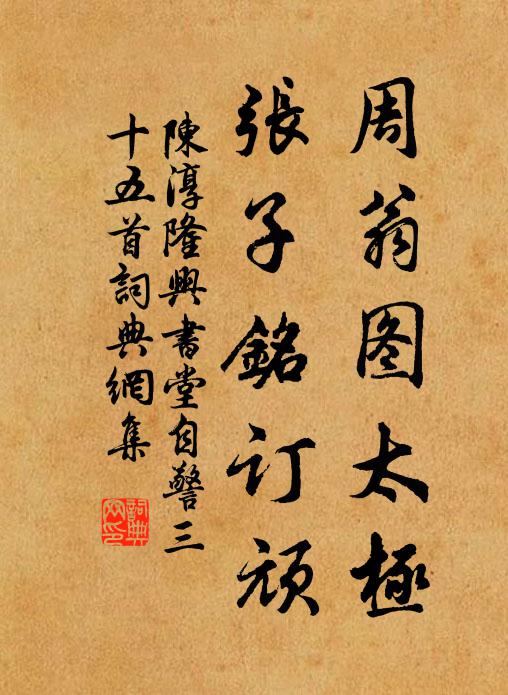 周翁图太極
張子銘订頑
陳淳隆興書堂自警三
十五首詞典網集
詞典网印